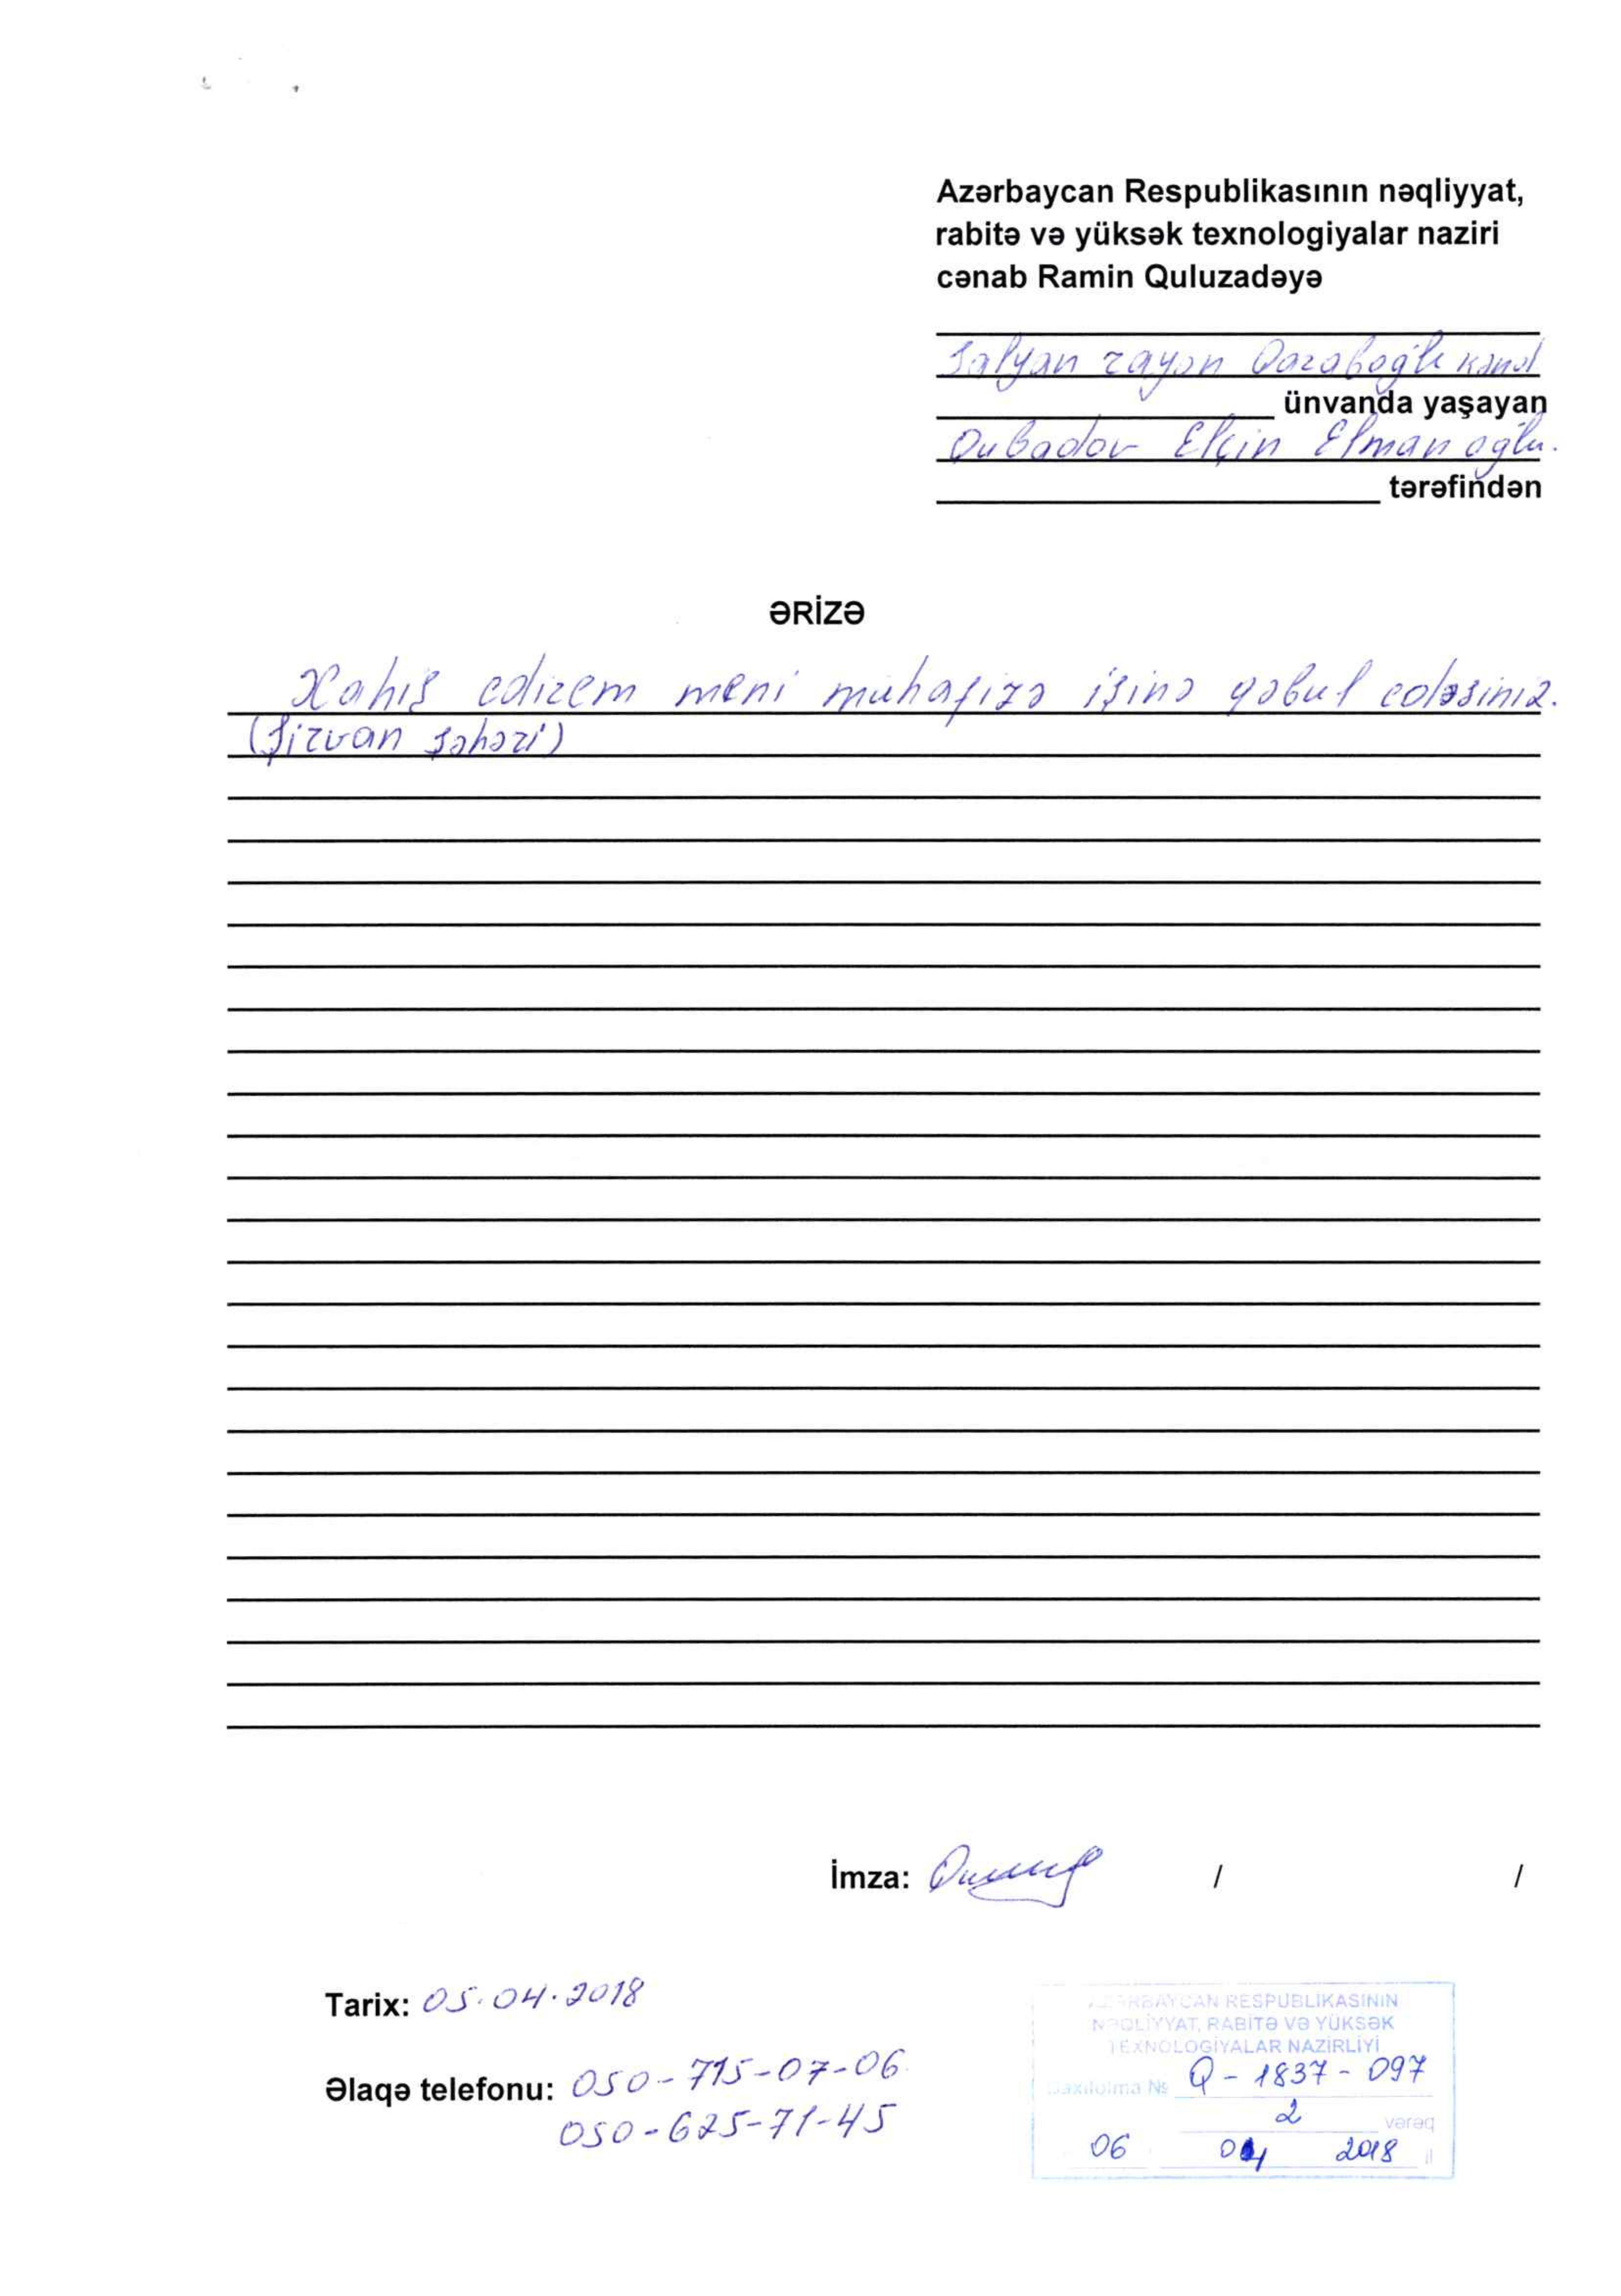 Azərbaycan Respublikasının nəqliyyat,
rabitə və yüksək texnologiyalar naziri
cənab Ramin Quluzadəyə
Salyan rayon Qarabağlı kənd
ünvanda yaşayan
Qubadov Elçin Elman oğlu.
tərəfindən
ƏRİZƏ
Xahış edirem meni muhafizə işinə qəbul edəsiniz.
(Şirvan şəhəri)
İmza: / /
Tarix: 05.04.2018
Əlaqə telefonu: 050-715-07-06
050-625-71-45
AZƏRBAYCAN RESPUBLİKASININ
NƏQLİYYAT, RABİTƏ VƏ YÜKSƏK
TEXNOLOGİYALAR NAZİRLİYİ
Daxilolma № Q-1837-097
2 vərəq
06 04 2018 il